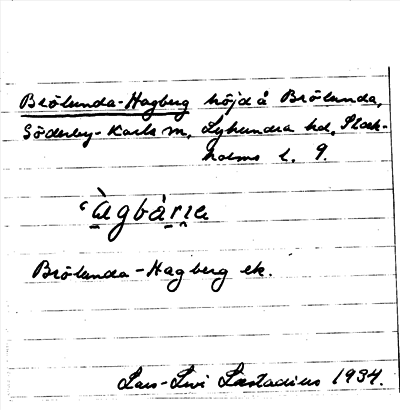 Brölunda-Hagberg höjd å Brölunda,
Söderby-Karls sn, Lyhundra hd, Stock-
holms l. 9.
Brölunda-Hagberg ek.
Lars-Levi Læstadius 1934.